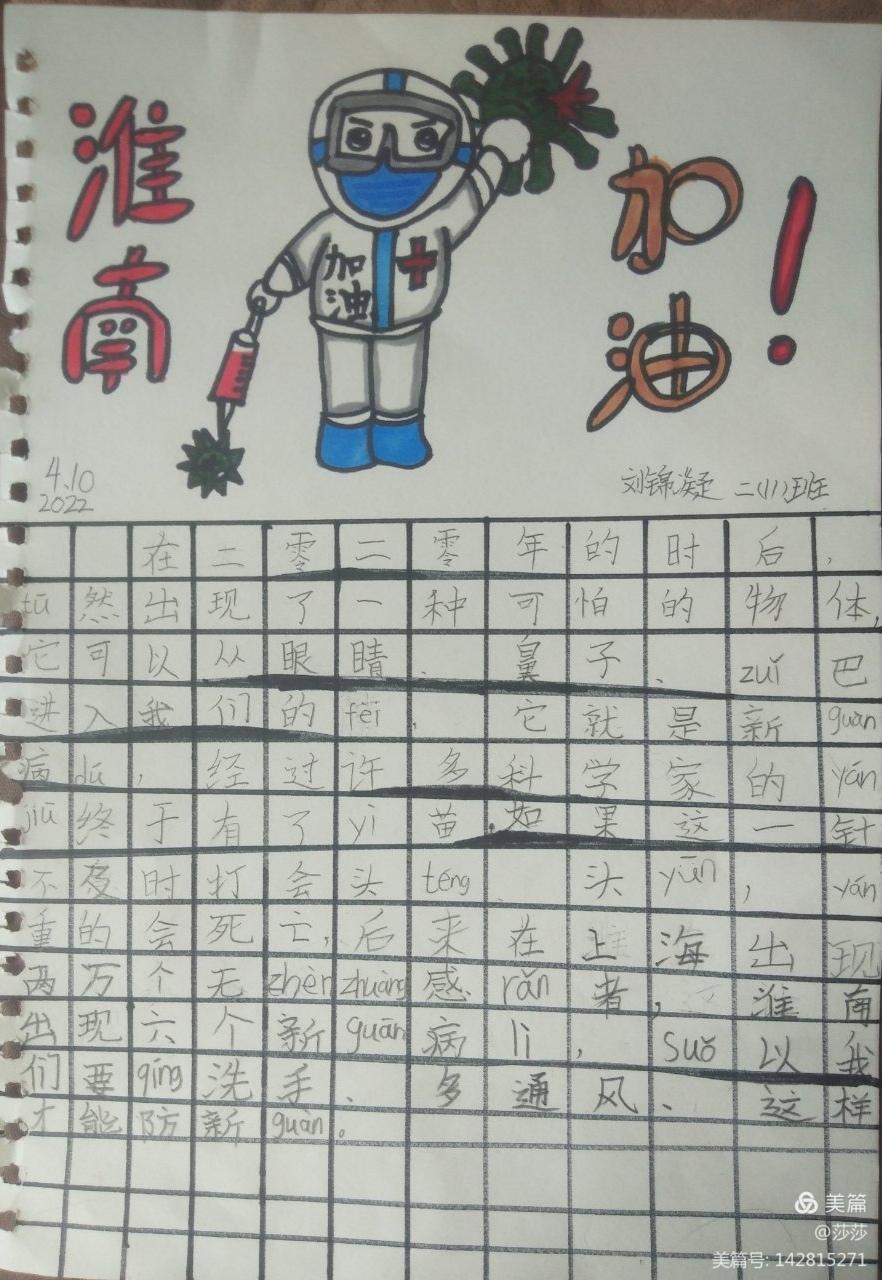 淮南
加油！
加油
4.10
2022
刘锦凝 二(11)班
在二零二零年的时后，
tū然出现了一种可怕的物体，
它可以从眼睛、鼻子、zuǐ巴
进入我们的fèi，它就是新guān
病dú，经过许多科学家的yán
jiū终于有了yì苗，如果这一针
不及时打会头téng、头yūn，yán
重的会死亡，后来在上海出现
两万个无zhèn zhuàng感rǎn者，淮南
出现六个新guān病lì，suǒ以我
们要qíng洗手、多通风、这样
才能防新guàn。
美篇
@莎莎
美篇号: 142815271